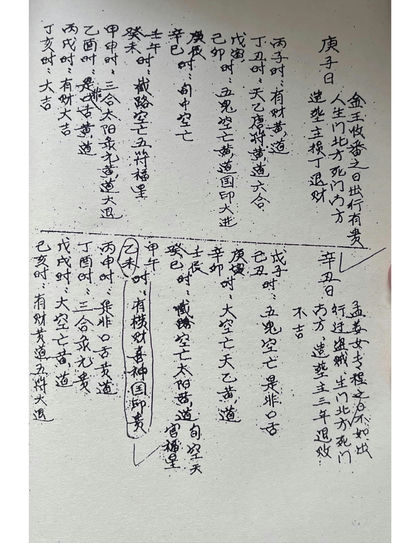 庚子日
金玉收番之日出行有贵
人生门北方死门南方
造葬主横丁退财
丙子时:有财黄道
丁丑时:天乙唐符黄道六合
戊寅
己卯时:五鬼空亡黄道国印大进
庚辰
辛巳时:旬中空亡
壬午
癸未时:截路空亡五符福星
甲申时:三合太阳金光黄道大退
乙酉时:是非口舌黄道
丙戌时:有财大吉
丁亥时:大吉
辛丑日
孟姜女专程之日不如出
行逢盗贼生门北方死门
南方,造葬主三年退败
不吉
戊子时:五鬼空亡是非口舌
己丑
庚寅
辛卯时:大空亡天乙黄道
壬辰
癸巳时:截路空亡太阳黄道旬空天官福星
甲午
乙未时:有横财喜神国印贵
丙申时:是非口舌黄道
丁酉时:三合金光贵
戊戌时:大空亡黄道
己亥时:有财黄道五符大退